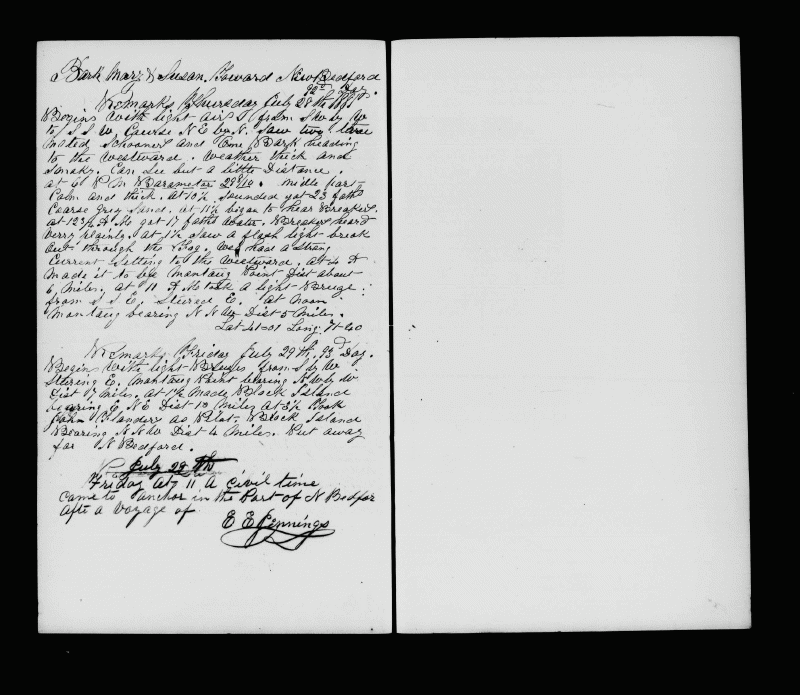 Bark Mary & Susan. Toward New Bedford
92d Day.
Remarks Thursday July 28th
Begins with light air from S by W
to S S W, Course N E by N. Saw two three
Masted Schooners and One Bark heading
to the westward. Weather thick and
Smoky. Can See but a little Distance.
at 6 P M Barometer Middle part
Calm and thick. At 10½ Sounded got 23 faths
Coarse Grey Sand. at 11½ began to hear Breakers.
at 12½ A.M got 17 faths Water. Breakers heard
verry plainly. At 1½ Saw a flash light break
Out through the Fog. We had a Strong
Current Setting to the Westward. At 4 A
Made it to be Montaug Point Dist about
6 Miles. at 11 A.M took a light Breeze
from S S E. Stered E. at Noon
Montaug bearing N N W Dist 5 Miles.
Lat 41=01 Long 71-40
Remarks Friday July 29th. 93d Day.
Begins With light Breeses from S by W.
Stering E. Montaug Point bering N by W
Dist 7 Miles. at 1½ Made Block Island
bearing E, N E Dist 13 Miles at 3½ Took
John Flanders as Pilot. Block Island
Bearing N N W Dist 4 Miles. Put away
for N Bedford.
July 29th
Friday at 11 A Civil time
Came to anchor in the Port of N Bedfor
after a Voyage of
E E Jennings